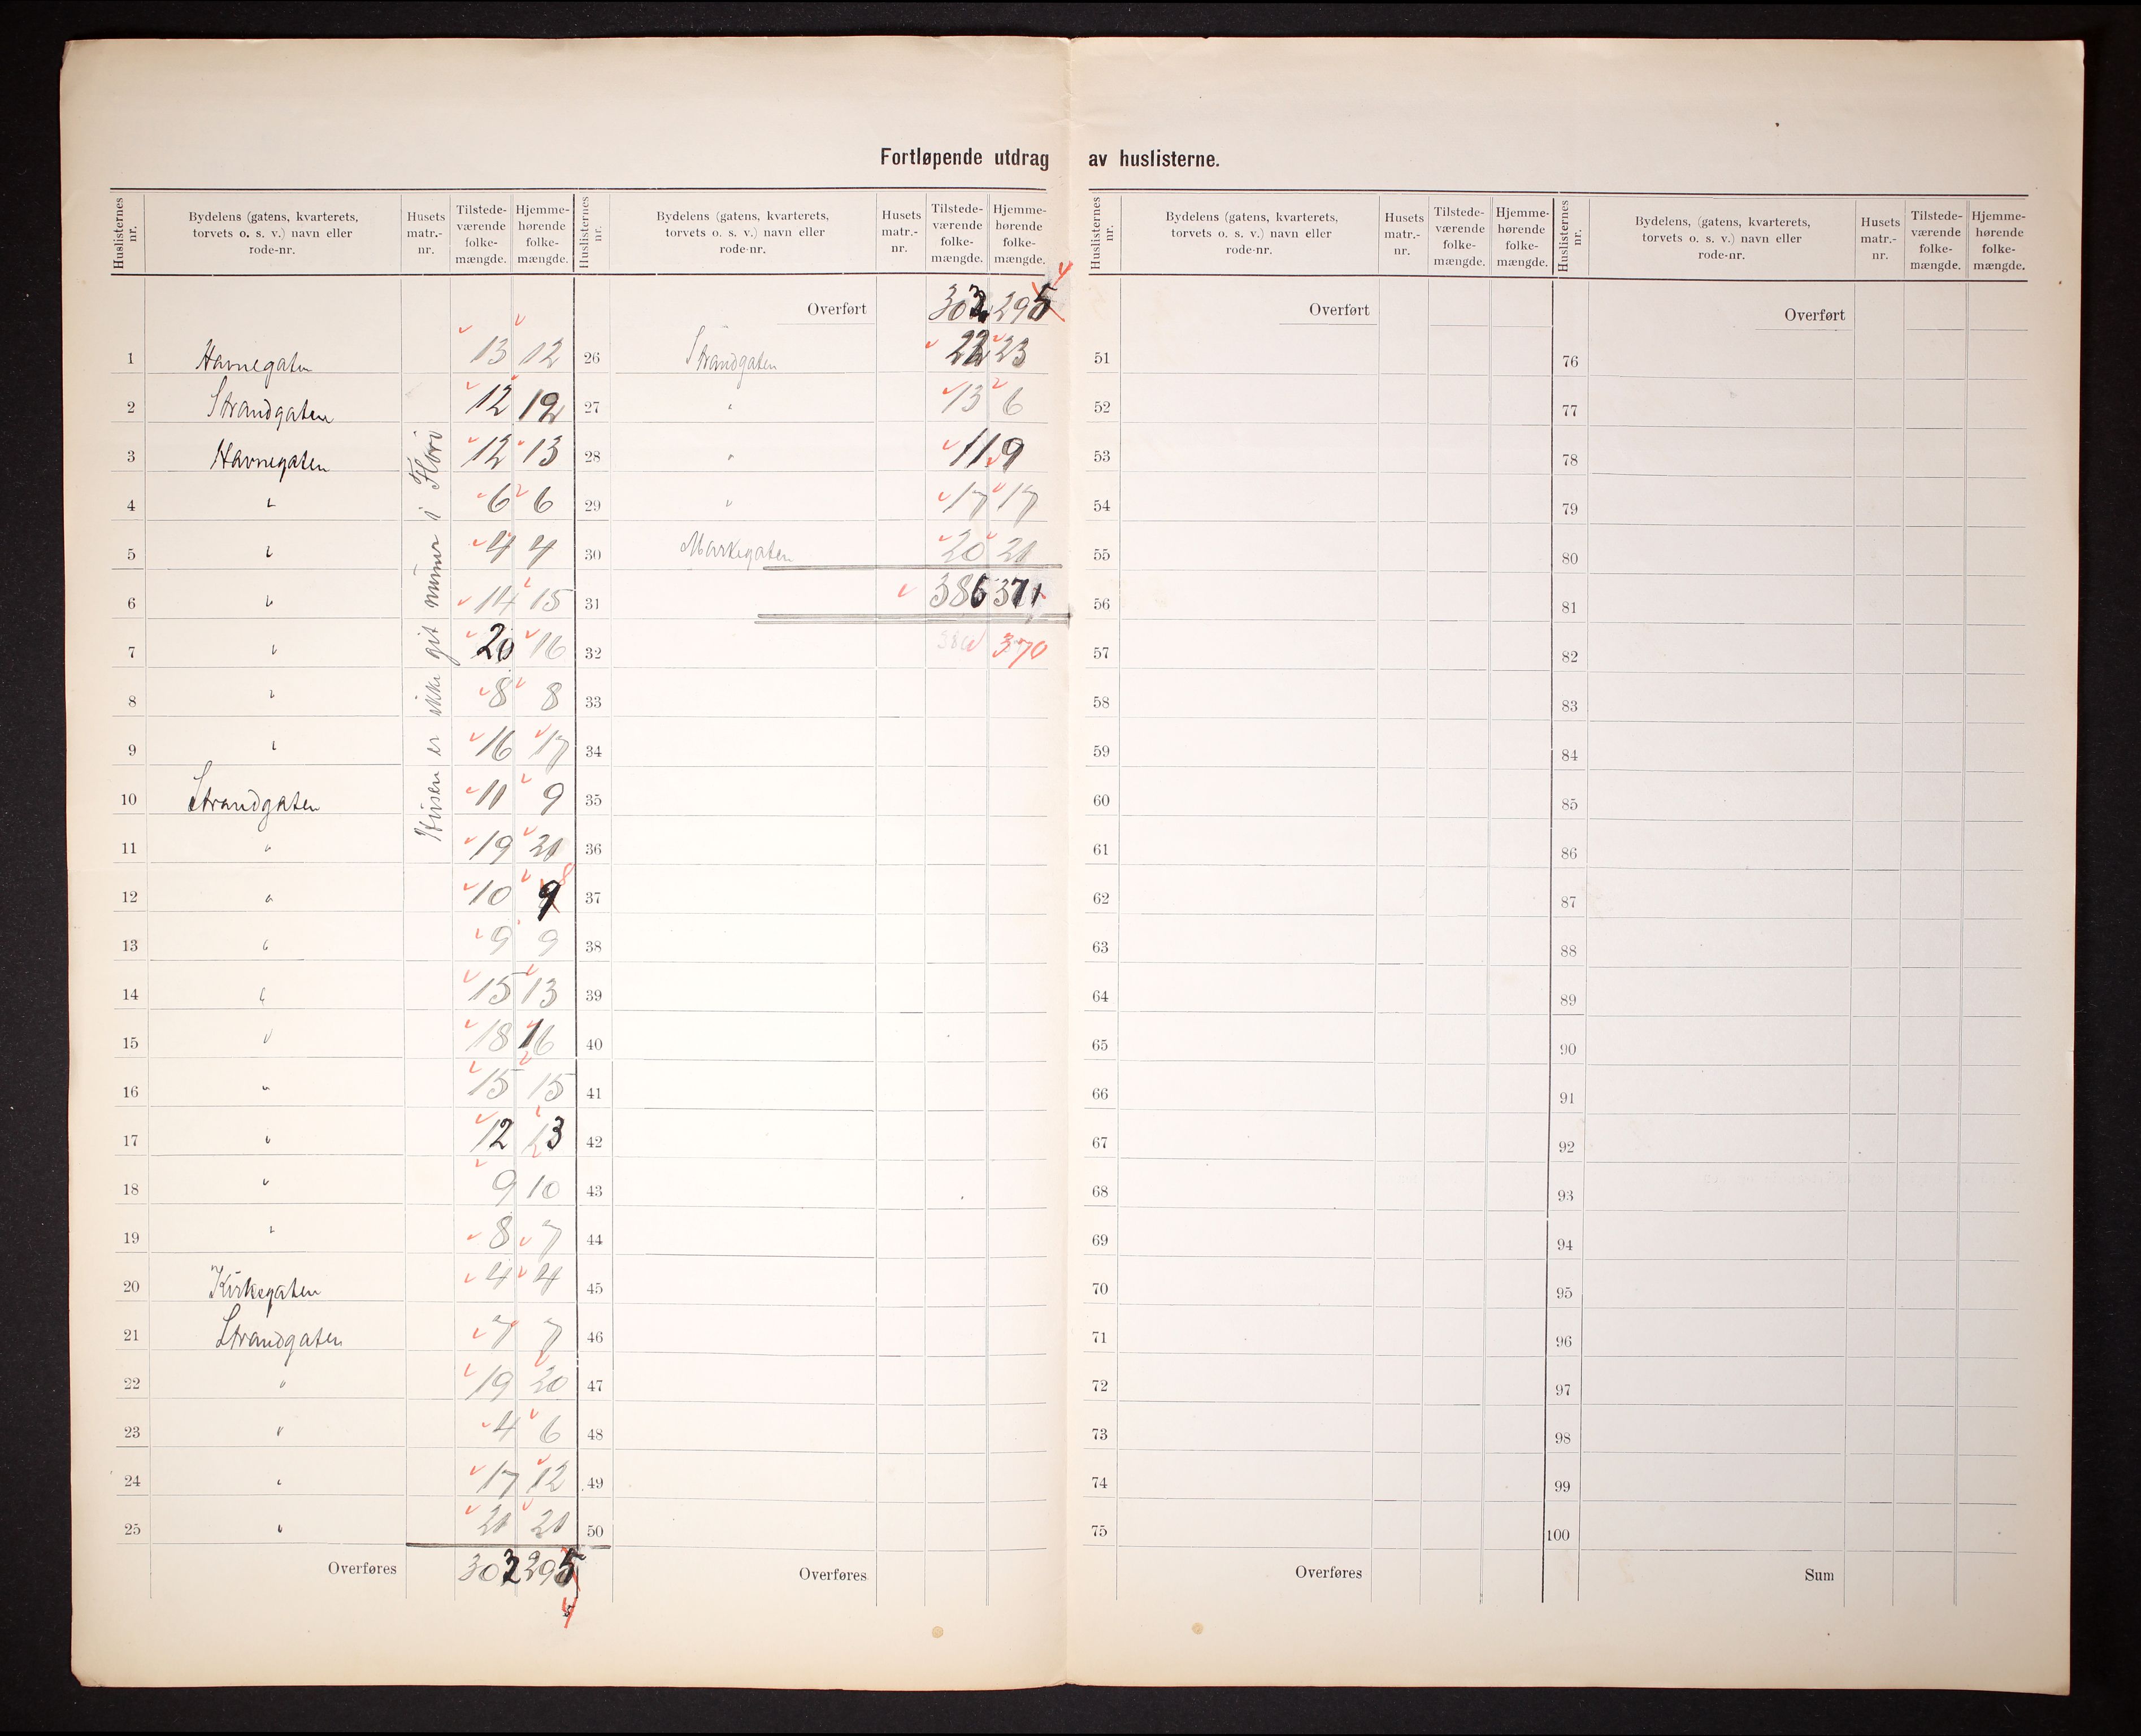 Fortløpende utdrag av huslisterne.
Huslisternes nr. | Bydelens (gatens, kvarterets, torvets o. s. v.) navn eller rode-nr. | Husets matr.-nr. | Tilstede-værende folke-mængde. | Hjemme-hørende folke-mængde.
1 Havnegaten 13 12
2 Strandgaten 12 12
3 Havnegaten 12 13
4 " 6 6
5 " 4 4
6 " 14 15
7 " 20 16
8 " 8 8
9 " 16 17
10 Strandgaten 11 9
11 " 19 20
12 " 10 9 8
13 " 9 9
14 " 15 13
15 " 18 16
16 " 15 15
17 " 12 13
18 " 9 10
19 " 8 7
20 Kirkegaten 4 4
21 Strandgaten 7 7
22 " 19 20
23 " 4 6
24 " 17 12
25 " 20 21
Overføres 302 295 4
Husen er ikke git numer i Florø
Huslisternes nr. | Bydelens (gatens, kvarterets, torvets o. s. v.) navn eller rode-nr. | Husets matr.-nr. | Tilstede-værende folke-mængde. | Hjemme-hørende folke-mængde.
Overført 302 295 4
26 Strandgaten 22 23
27 " 13 6
28 " 11 9
29 " 17 17
30 Markegaten 20 21
31 386 371
32 386 370
33
34
35
36
37
38
39
40
41
42
43
44
45
46
47
48
49
50
Overføres
Huslisternes nr. | Bydelens (gatens, kvarterets, torvets o. s. v.) navn eller rode-nr. | Husets matr.-nr. | Tilstede-værende folke-mængde. | Hjemme-hørende folke-mængde.
Overført
51
52
53
54
55
56
57
58
59
60
61
62
63
64
65
66
67
68
69
70
71
72
73
74
75
Overføres
Huslisternes nr. | Bydelens, (gatens, kvarterets, torvets o. s. v.) navn eller rode-nr. | Husets matr.-nr. | Tilstede-værende folke-mængde. | Hjemme-hørende folke-mængde.
Overført
76
77
78
79
80
81
82
83
84
85
86
87
88
89
90
91
92
93
94
95
96
97
98
99
100
Sum